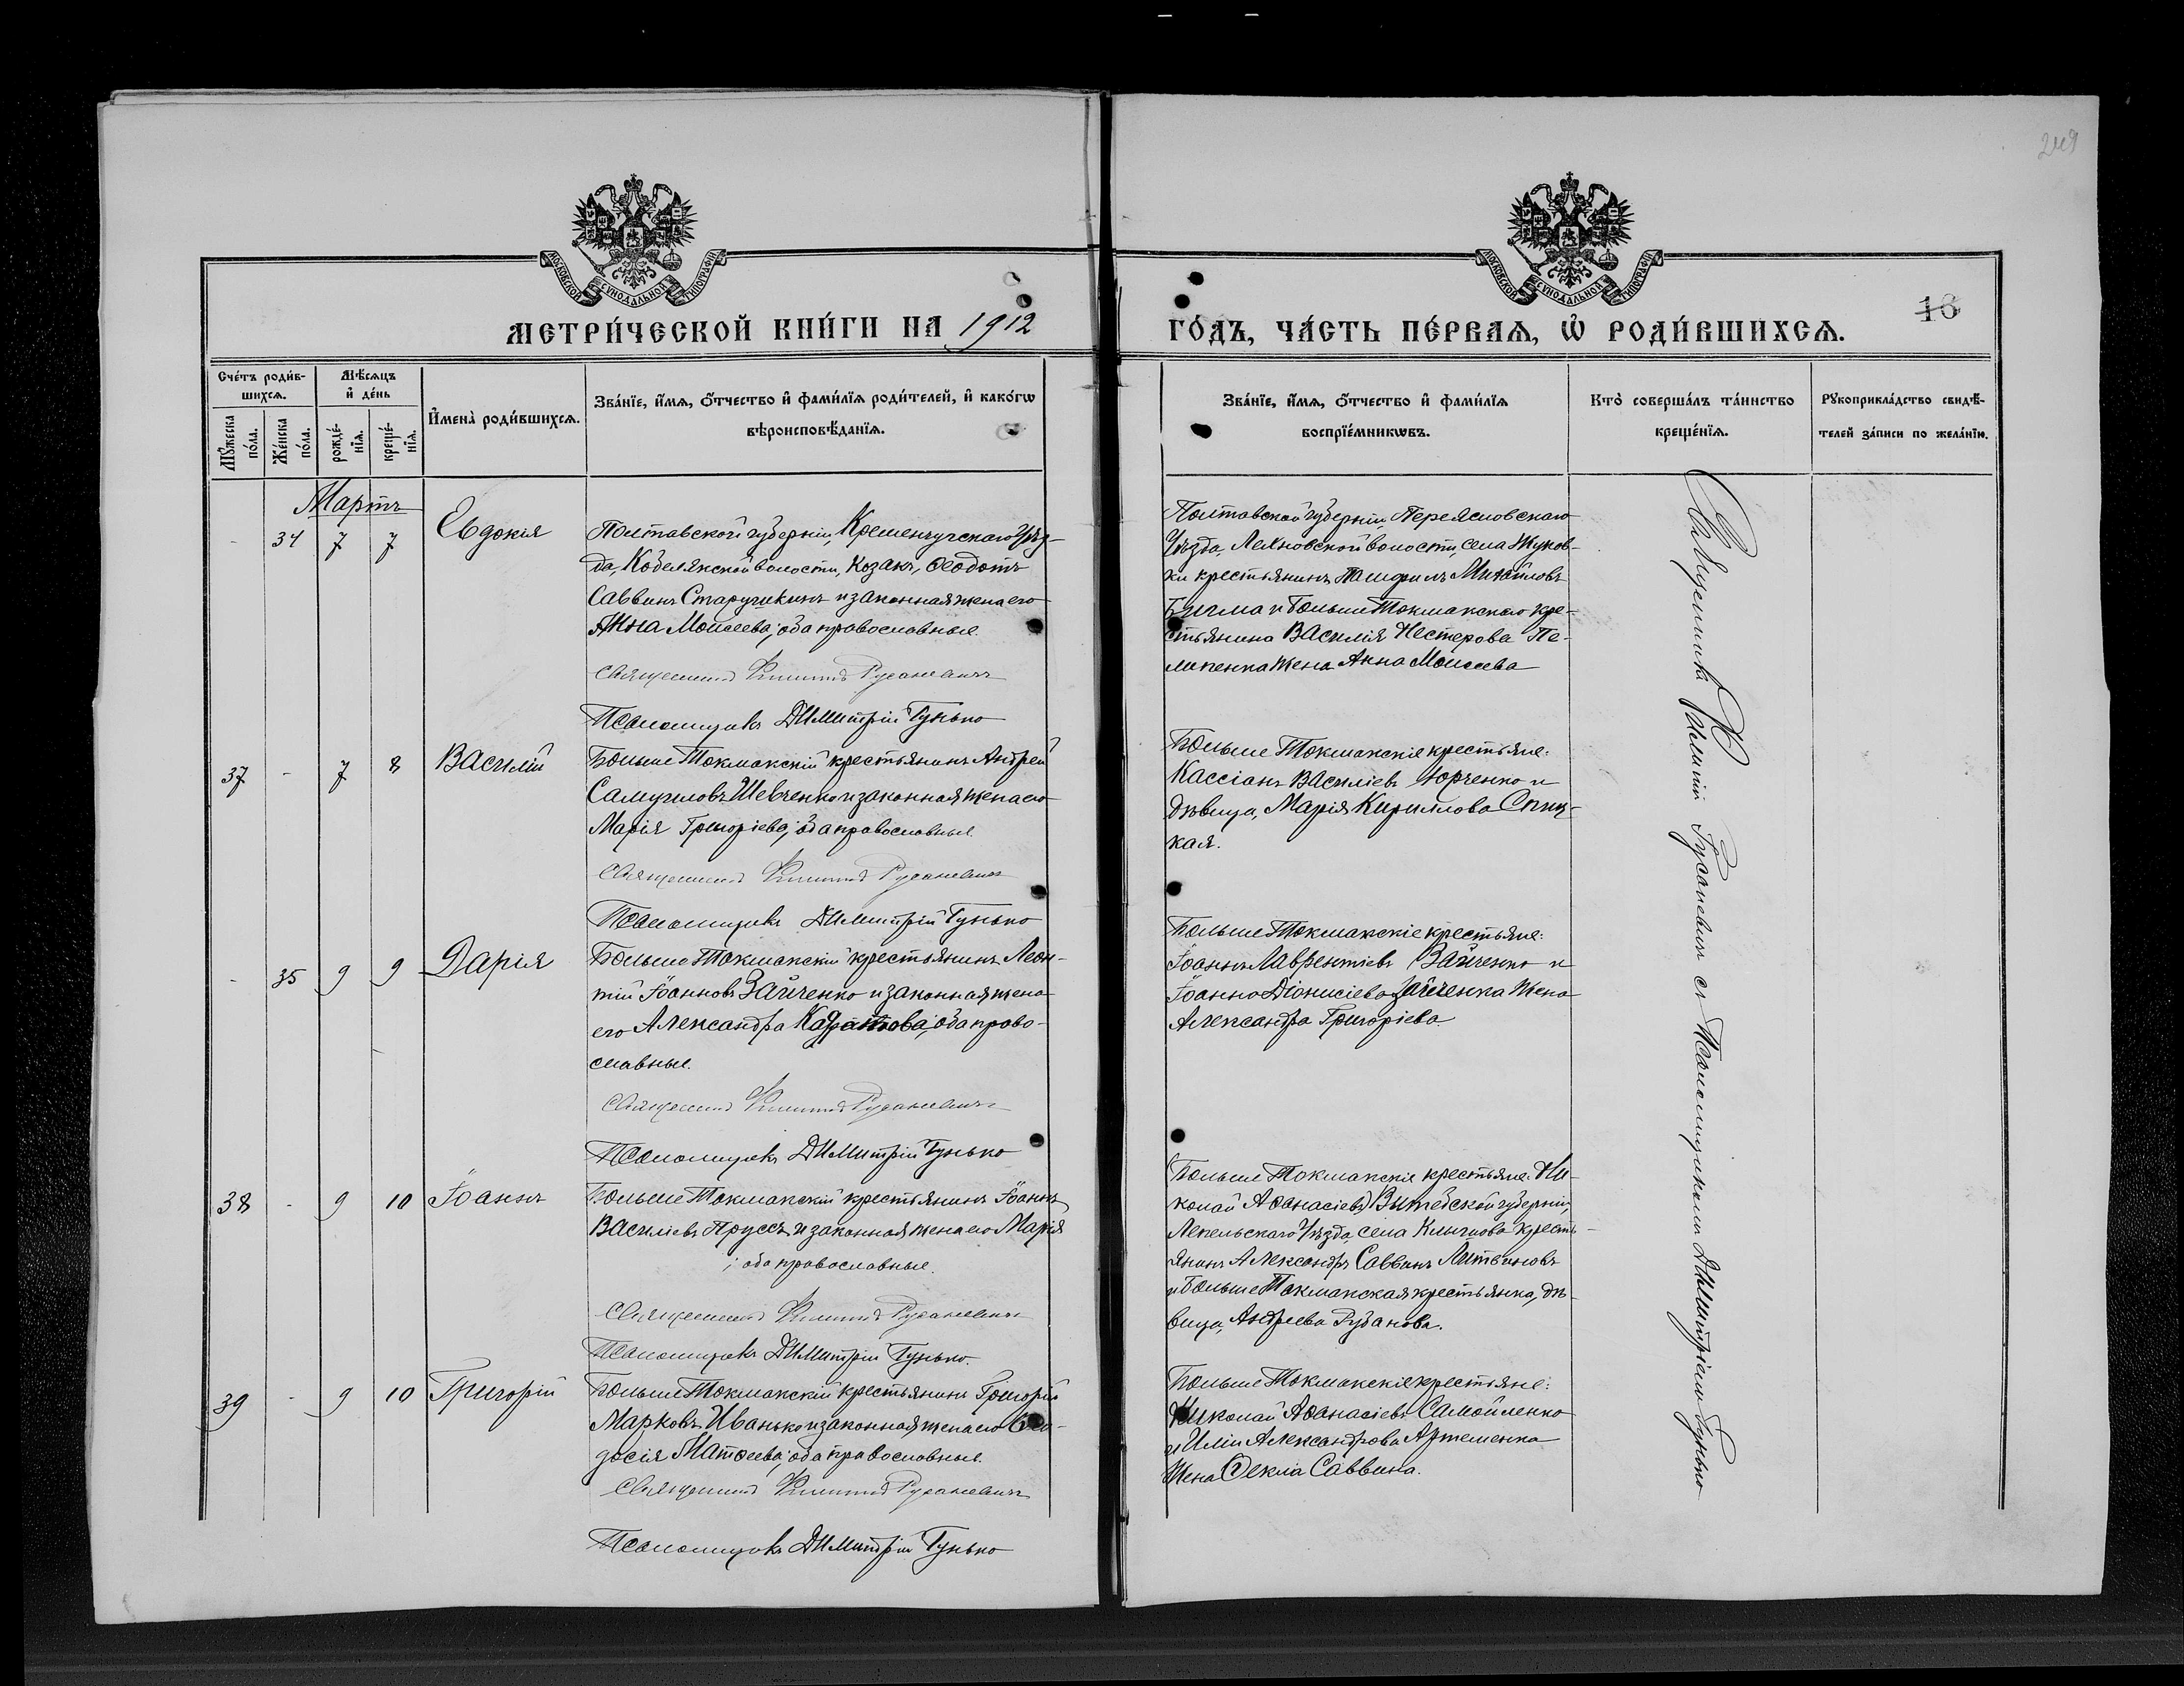 249
МОСКОВСКОЙ СУНОДАЛЬНОЙ ТИПОГРАФІИ
МОСКОВСКОЙ СУНОДАЛЬНОЙ ТИПОГРАФІИ
МЕТРИ́ЧЕСКОЙ КНИ́ГИ НА 1912
ГО́ДЪ, ЧА́СТЬ ПЕ́РВАѦ, Ѡ҆ РОДИ́ВШИХСѦ.
16
Сче́тъ роди́в-
шихсѧ.
Мѣ́сѧцъ
и҆ де́нь
Мꙋ́жеска
по́ла.
Же́нска
по́ла.
рожде́-
нїѧ.
креще́-
нїѧ.
И҆мена̀ роди́вшихсѧ.
Зва́нїе, и҆́мѧ, ѻ҆́тчество и҆ фами́лїѧ роди́телей, и҆ како́гѡ
вѣроисповѣ́данїѧ.
Зва́нїе, и҆́мѧ, ѻ҆́тчество и҆ фами́лїѧ
воспрїе́мникѡвъ.
Кто̀ соверша́лъ та́инство
креще́нїѧ.
Рꙋкоприкла́дство свидѣ́-
телей за́писи по жела́нїю.
Мартъ
- 34 7 7 Евдокія
Полтавской губерніи, Кременчугскаго Уѣз-
да, Кобелякской волости, Козакъ, Ѳеодотъ
Саввинъ Старушкинъ и законная жена его
Анна Моисеева; оба православные.
Священникъ Филиппъ Русаневичъ
Псаломщикъ Димитрій Гунько
Полтавской губерніи, Переясловскаго
Уѣзда, волости, села Жуков-
ки крестьянинъ Михайловъ
и Больше Токмакскаго кре-
стьянина Василія Нестерова Пе-
липенка жена Анна Моисеева
37 - 7 8 Василій
Больше Токмакскій крестьянинъ Андрей
Самуиловъ Шевченко и законная жена его
Марія Григоріева; оба православные.
Священникъ Филиппъ Русаневичъ
Псаломщикъ Димитрій Гунько
Больше Токмакскіе крестьяне:
Кассіанъ Василіевъ Юрченко и
дѣвица, Марія Кириллова Спиц-
кая.
- 35 9 9 Дарія
Больше Токмакскій крестьянинъ Леон-
тій Іоанновъ Зайченко и законная жена
его Александра Кодратова; оба право-
славные.
Священникъ Филиппъ Русаневичъ
Псаломщикъ Димитрій Гунько
Больше Токмакскіе крестьяне:
Іоаннъ Лаврентіевъ Зайченко и
Іоанна Діонисіева Зайченка жена
Александра Григоріева
38 - 9 10 Іоаннъ
Больше Токмакскій крестьянинъ Іоаннъ
Василіевъ Пруссъ и законная жена его Марія
; оба православные.
Священникъ Филиппъ Русаневичъ
Псаломщикъ Димитрій Гунько.
Больше Токмакскіе крестьяне: Ни-
колай Аѳанасіевъ, Витебской губерніи,
Лепельскаго Уѣзда, села крестъ-
янинъ Александръ Саввинъ Литвиновъ
и Больше Токмакская крестьянка, дѣ-
вица, Андреева Рубанова.
39 - 9 10 Григорій
Больше Токмакскій крестьянинъ Григорій
Марковъ Иванько и законная жена его Ѳео-
досія Матѳеева; оба православные.
Священникъ Филиппъ Русаневичъ
Псаломщикъ Димитрій Гунько
Больше Токмакскіе крестьяне:
Николай Аѳанасіевъ Самойленко
и Иліи Александрова Артеменка
жена Ѳекла Саввина.
Священникъ Филиппъ Русаневичъ съ Псаломщикомъ Димитріемъ Гунько